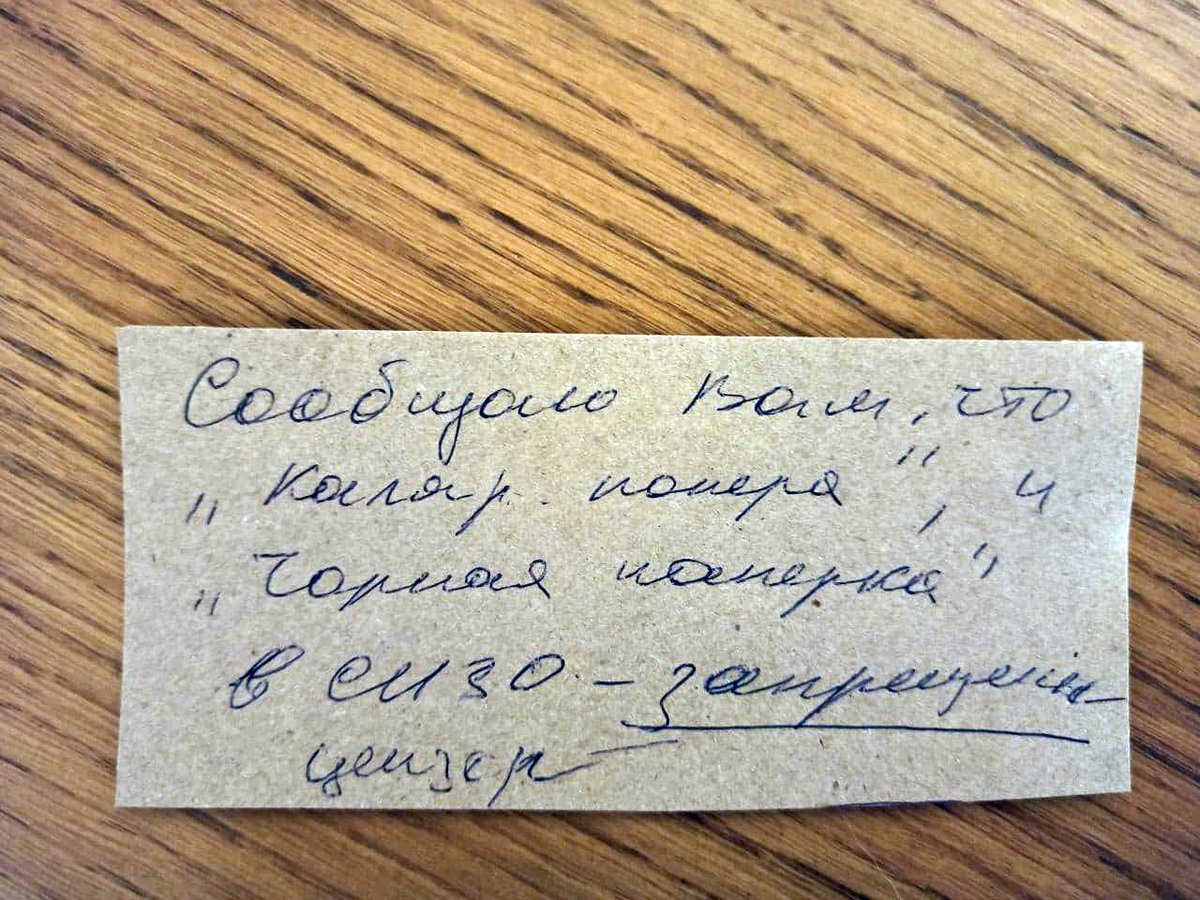 Сообщаю Вам, что
„Каляр. папера", и
„Чорная паперка"
в СИЗО - запрещены
цензор